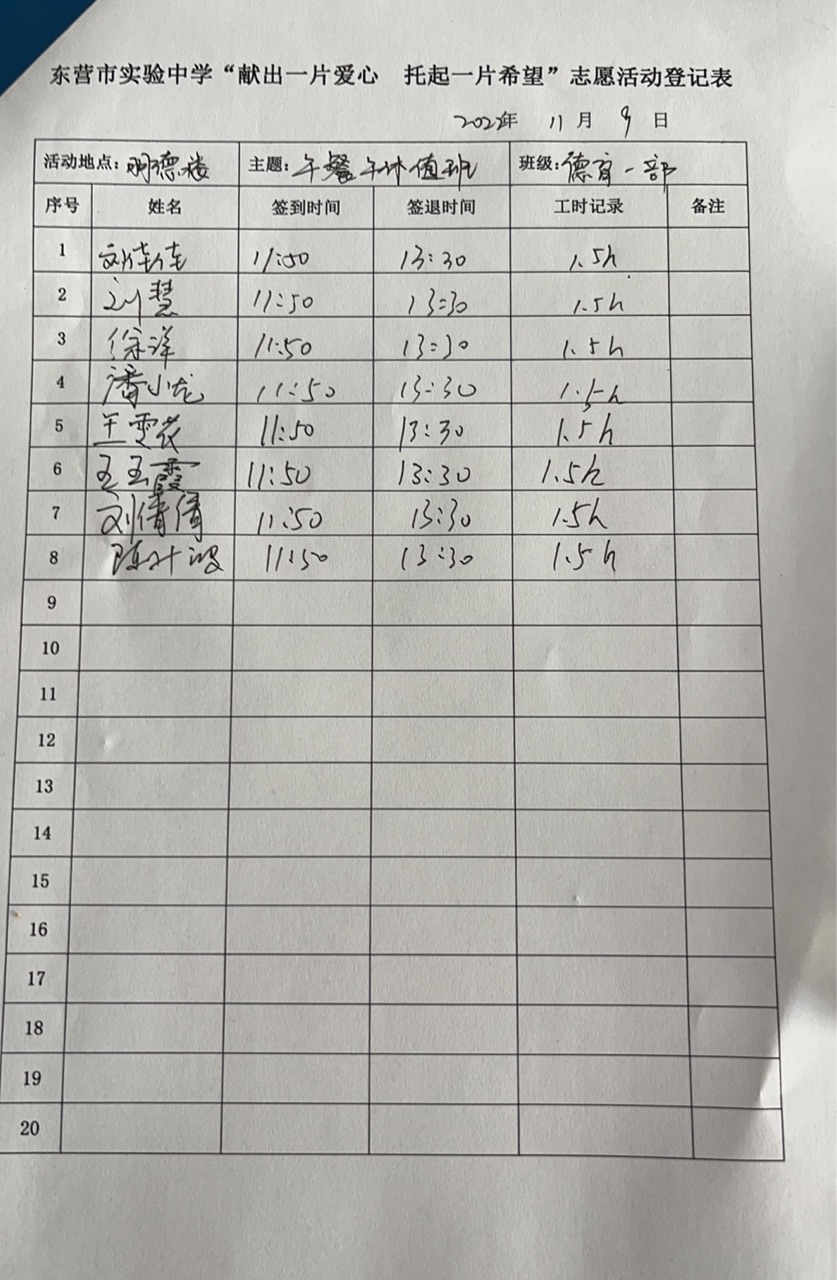 东营市实验中学“献出一片爱心 托起一片希望”志愿活动登记表
2022年 11月 9日
活动地点:明德楼 主题:午餐午休值班 班级:德育一部
序号 姓名 签到时间 签退时间 工时记录 备注
1 刘佳佳 11:50 13:30 1.5h
2 刘慧 11:50 13:30 1.5h
3 徐洋 11:50 13:30 1.5h
4 潘小龙 11:50 13:30 1.5h
5 王雪花 11:50 13:30 1.5h
6 王玉霞 11:50 13:30 1.5h
7 刘倩倩 11:50 13:30 1.5h
8 陈叶 11:50 13:30 1.5h
9
10
11
12
13
14
15
16
17
18
19
20